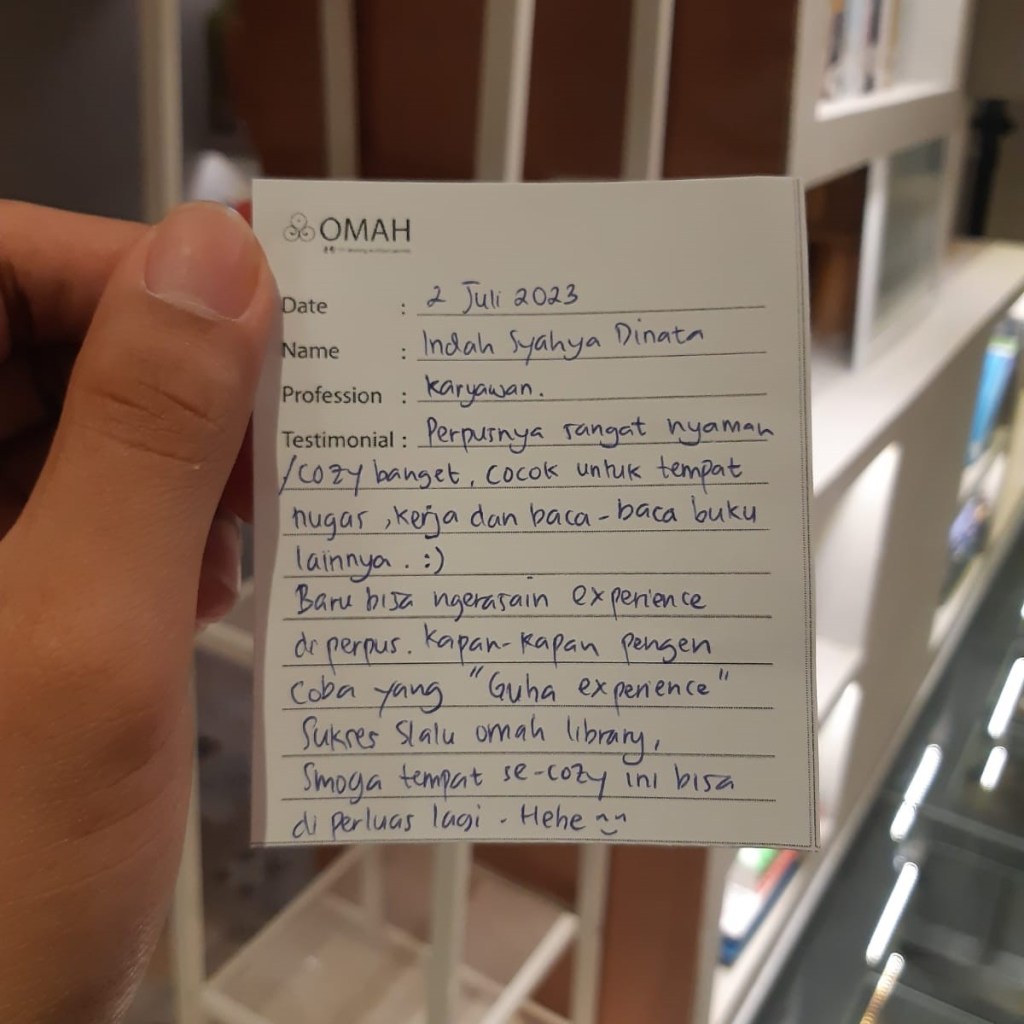 OMAH
Date : 2 Juli 2023
Name : Indah Syahya Dinata
Profession : Karyawan.
Testimonial : Perpusnya sangat nyaman
/cozy banget, cocok untuk tempat
nugas, kerja dan baca-baca buku
lainnya. :)
Baru bisa ngerasain experience
di perpus. Kapan-kapan pengen
coba yang "Guha experience"
Sukses slalu omah library,
Smoga tempat se-cozy ini bisa
di perluas lagi. Hehe